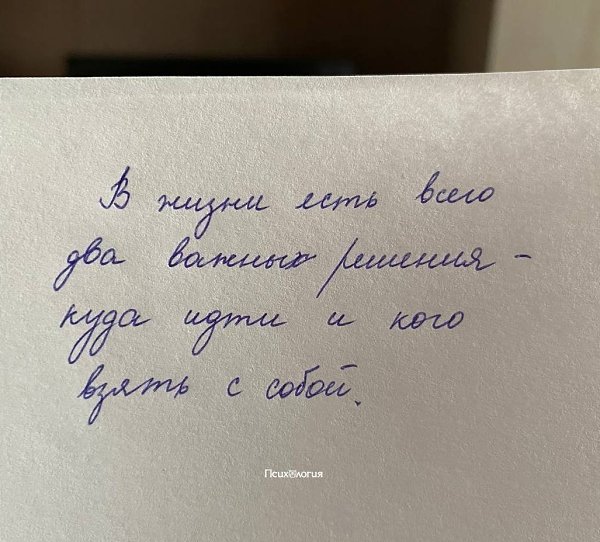 В жизни есть всего
два важных решения -
куда идти и кого
взять с собой.
Психология